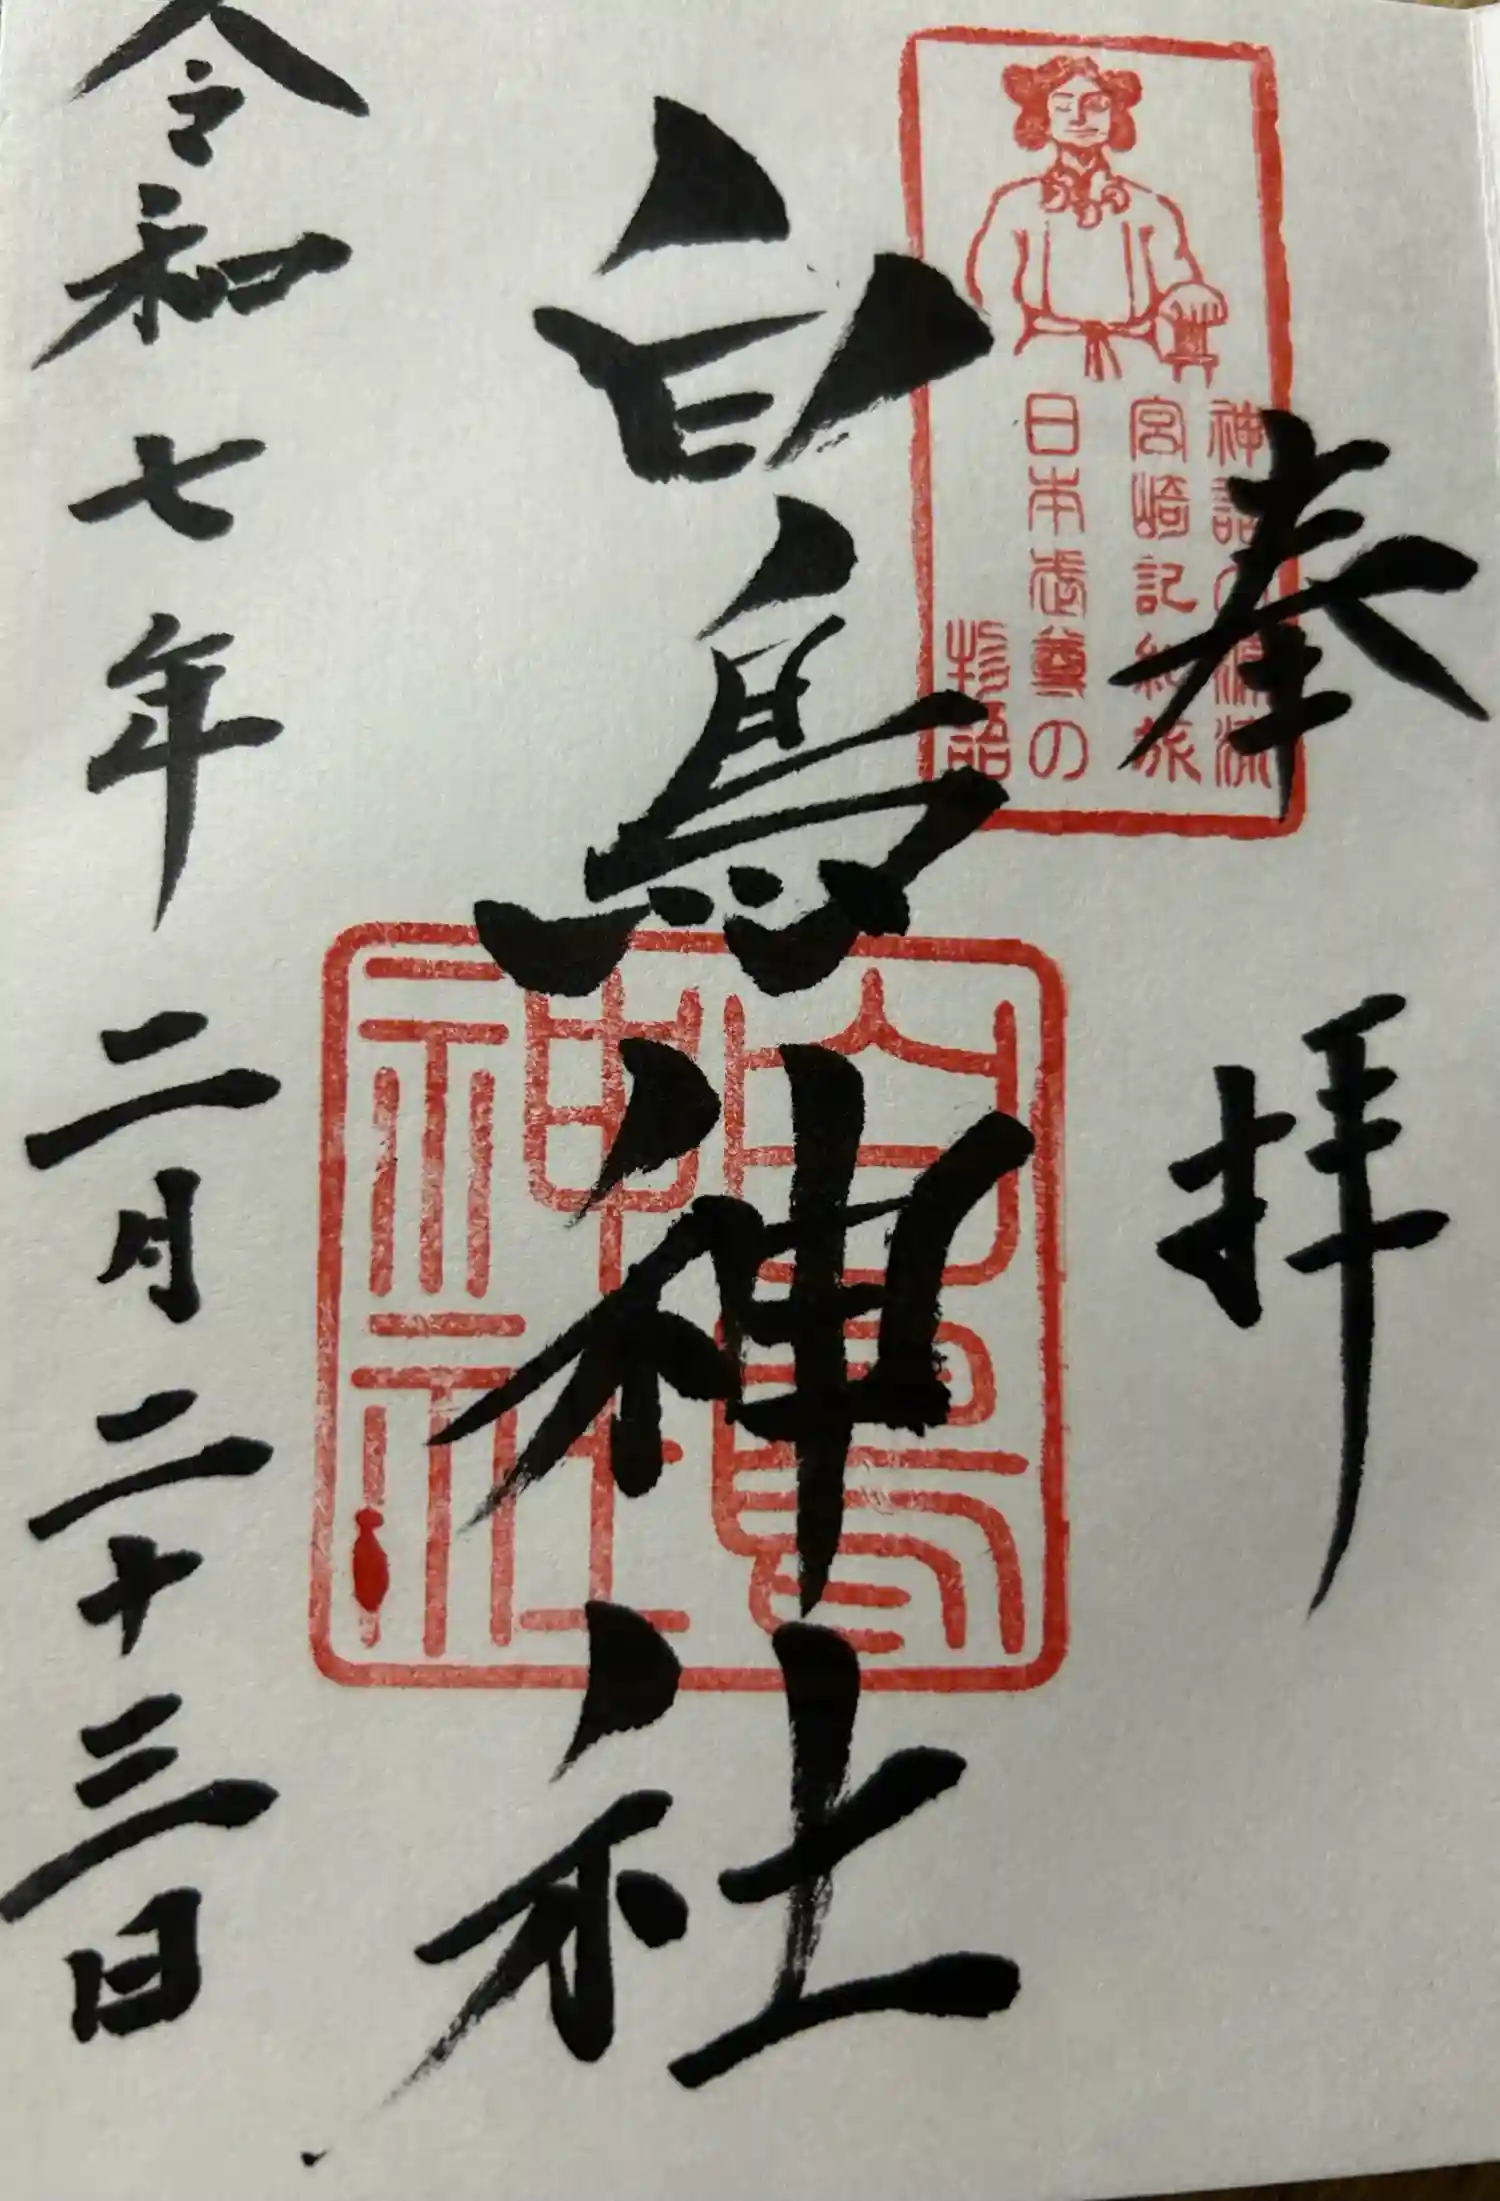 奉拝
神話の源流
宮崎記紀の旅
日本武尊の
物語
白鳥神社
白鳥
神社
令和七年二月二十三日